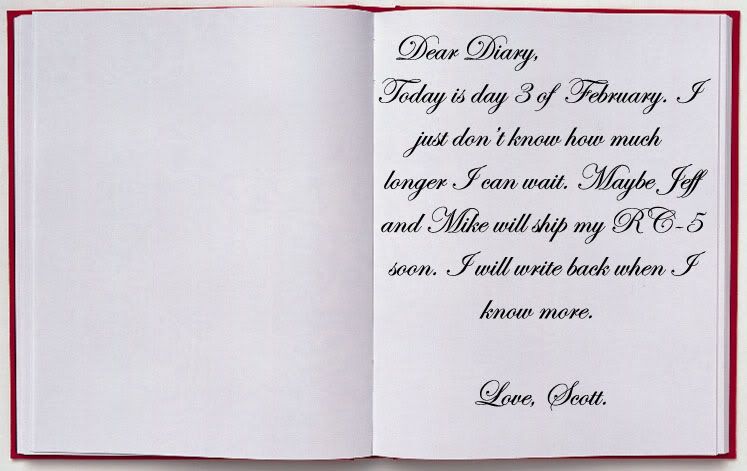 Dear Diary,
Today is day 3 of February. I
just don't know how much
longer I can wait. Maybe Jeff
and Mike will ship my RC-5
soon. I will write back when I
know more.
Love, Scott.